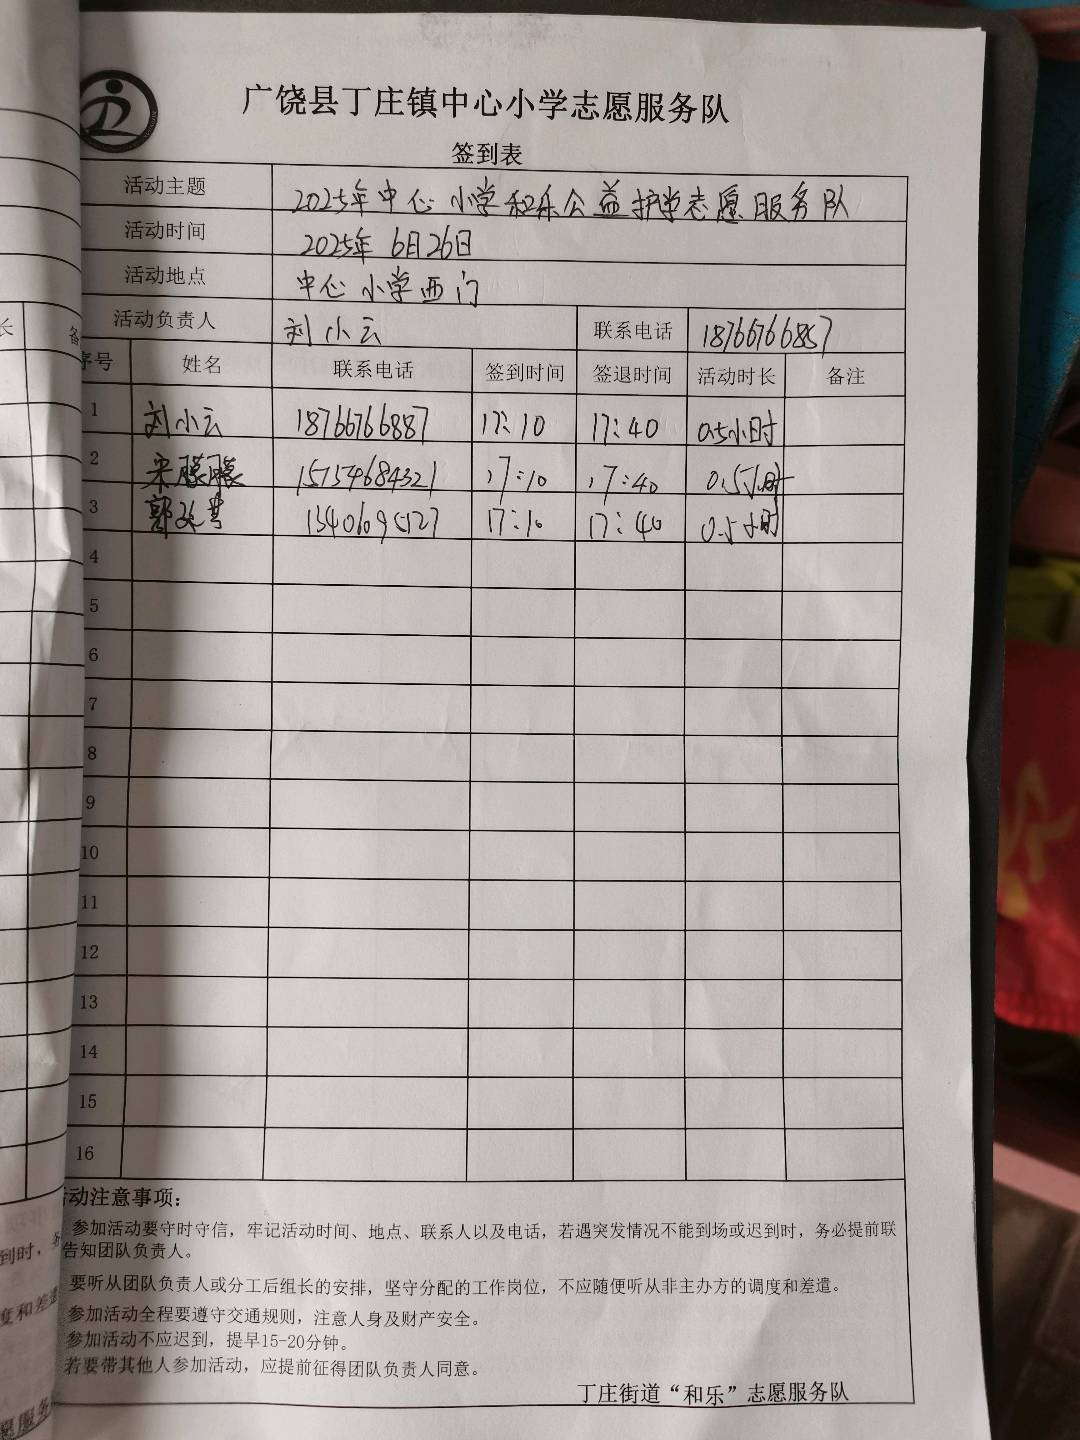 广饶县丁庄镇中心小学志愿服务队
签到表
活动主题 2025年中心小学和乐公益护学志愿服务队
活动时间 2025年6月26日
活动地点 中心小学西门
活动负责人 刘小云 联系电话 18766766857
序号 姓名 联系电话 签到时间 签退时间 活动时长 备注
1 刘小云 18766766887 17:10 17:40 0.5小时
2 宋朦朦 15754684321 17:10 17:40 0.5小时
3 郭 13406095127 17:10 17:40 0.5小时
4
5
6
7
8
9
10
11
12
13
14
15
16
活动注意事项：
参加活动要守时守信，牢记活动时间、地点、联系人以及电话，若遇突发情况不能到场或迟到时，务必提前联
告知团队负责人。
要听从团队负责人或分工后组长的安排，坚守分配的工作岗位，不应随便听从非主办方的调度和差遣。
参加活动全程要遵守交通规则，注意人身及财产安全。
参加活动不应迟到，提早15-20分钟。
若要带其他人参加活动，应提前征得团队负责人同意。
丁庄街道“和乐”志愿服务队